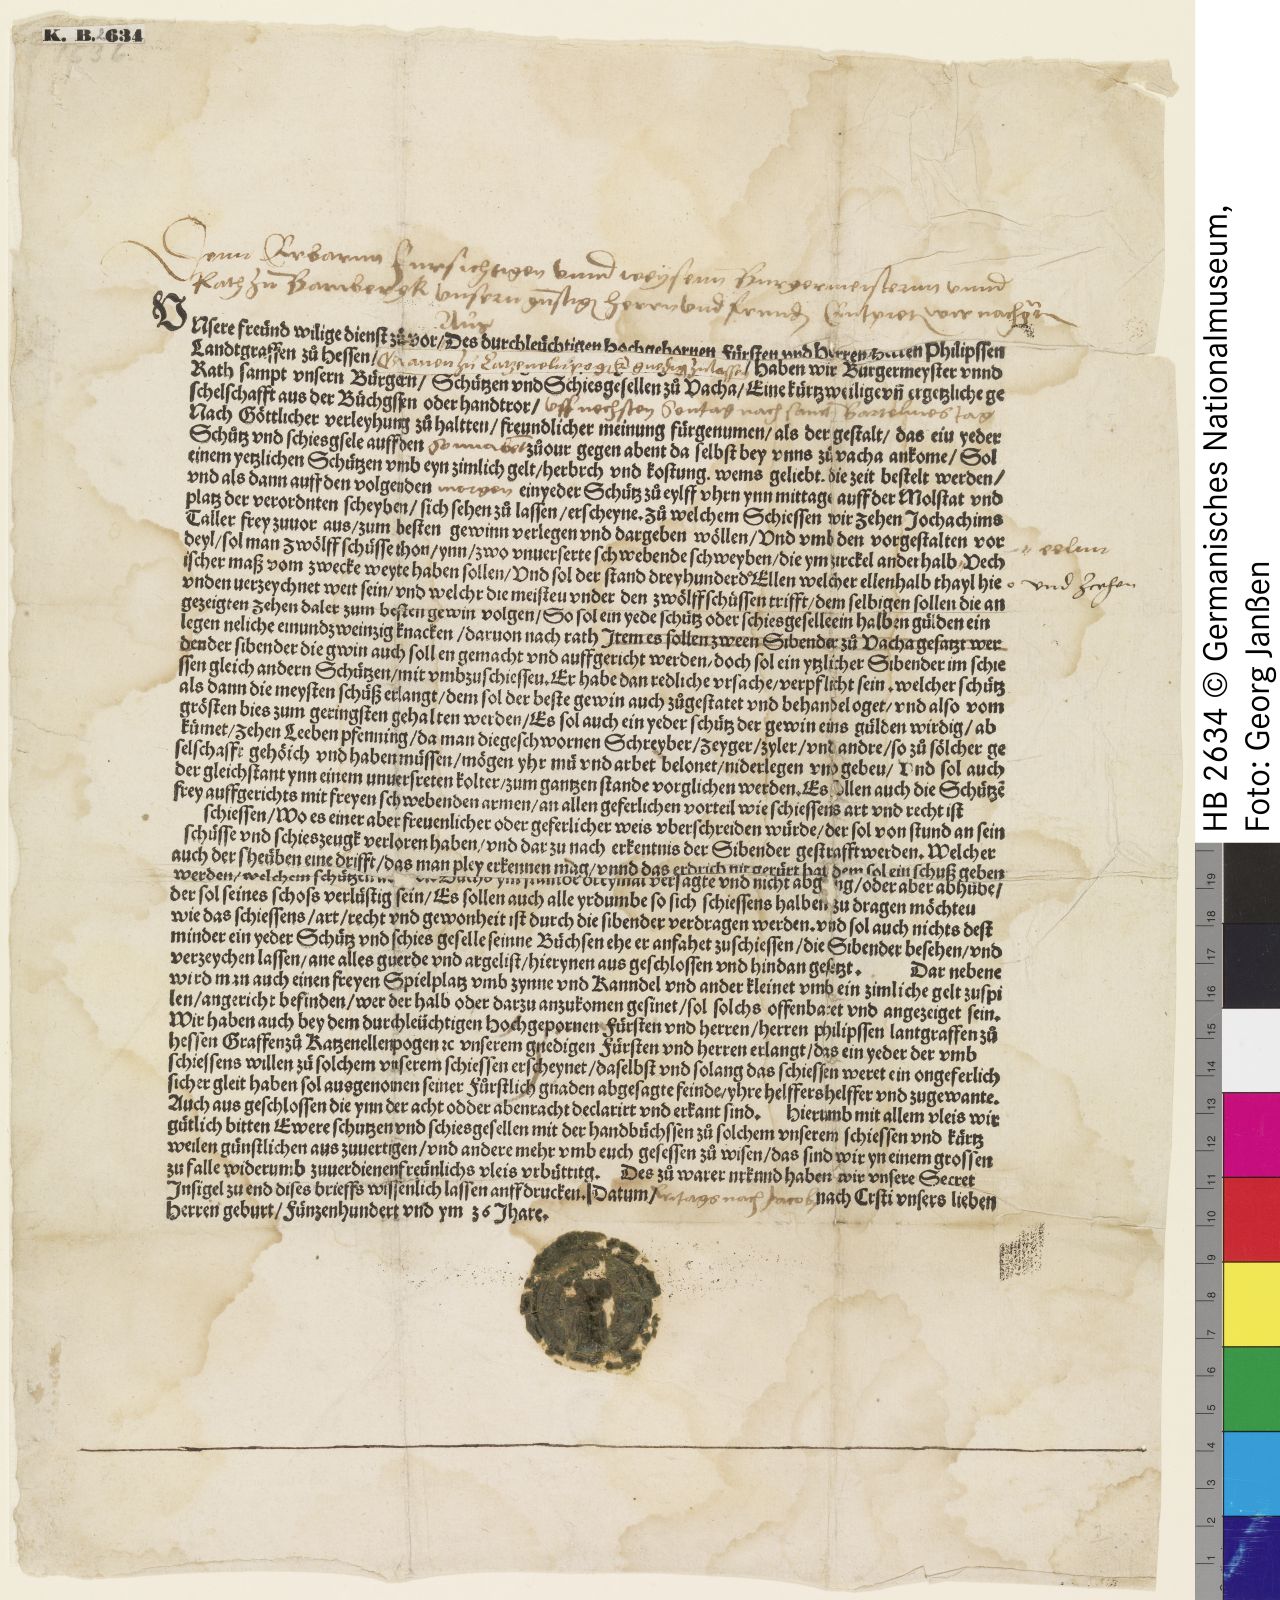 K. B. 2634
1536
Denn Erbarnn Fursichtigen vnnd weysenn Burgermeisternn vnnd
Rath zu Bambergk vnsern gunstig herrn vnd freund Entpiet wir nachgn
Auß
VNsere freünd wilige dienst zůvor/Des durchleüchtigen hochgebornen Fürsten vnd Herren Herren Philipssen
Landtgraffen zů Hessen/ Grauen zu Catzenelnpogk gnedig zulassen/ haben wir Bürgermeyster vnnd
Rath sampt vnsern Bürgern/ Schützen vnd Schiesgesellen zů Vacha/ Eine kürtzweilige vñ ergetzliche ge
schelschafft aus der Büchgssen oder handtror/ vff nechsten Sontag nach sanct Bartelmes tag
Nach Göttlicher verleyhung zů haltten/ freundlicher meinung fürgenumen/ als der gestalt/ das ein yeder
Schütz vnd schiesgsele auff den Sonnabet zůour gegen abent da selbst bey vnns zů vacha ankome/ Sol
einem yetzlichen Schützen vmb eyn zimlich gelt/herbrch vnd kostung. wems geliebt. die zeit bestelt werden/
vnd als dann auff den volgenden morgen ein yeder Schütz zů eylff vhrn ynn mittage auff der Molstat vnd
platz der verordnten scheyben/ sich sehen zů lassen/erscheyne. Zů welchem Schiessen wir Zehen Jochachims
Taller frey zuuor aus/zum besten gewinn verlegen vnd dargeben wöllen/ Vnd vmb den vorgestalten vor
deyl/sol man zwölff schüsse thon/ynn/zwo vnuerserte schwebende schweyben/die ym zurckel anderhalb Vech
eelnn
ischer maß vom zwecke weyte haben sollen/Vnd sol der stand dreyhunderd Ellen welcher ellen halb thayl hie
vnd zcehen
vnden uerzeychnet weit sein/vnd welchr die meisten vnder den zwölff schüssen trifft/dem selbigen sollen die an
gezeigten Zehen daler zum besten gewin volgen/So sol ein yede schütz oder schiesgeselle ein halben gülden ein
legen neliche einundzweinzig knacken/daruon nach rath Item es sollen zween Sibender zů Vacha gesatzt wer
den der sibender die gwin auch sollen gemacht vnd auffgericht werden.doch sol ein ytzlicher Sibender im schie
ssen gleich andern Schützen/mit vmbzuschiessen.Er habe dan redliche vrsache/verpflicht sein.welcher schütz
als dann die meysten schüß erlangt/dem sol der beste gewin auch zůgestatet vnd behandel oget/vnd also vom
grösten bies zum geringsten gehalten werden/Es sol auch ein yeder schütz der gewin eins gülden wirdig/ab
kümet/Zehen Leeben pfenning/da man die geschwornen Schreyber/Zeyger/zyler/vnd andre/so zů sölcher ge
selschafft gehöich vnd haben müssen/mögen yhr mü vnd arbet belonet/niderlegen vnd gebeu/ Vnd sol auch
der gleichstant ynn einem unuersreten kolter/zum gantzen stande vorglichen werden.Es sollen auch die Schützē
frey auffgerichts mit freyen schwebenden armen/an allen geferlichen vorteil wie schiessens art vnd recht ist
schiessen/Wo es einer aber freuenlicher oder geferlicher weis vberschreiden würde/der sol von stund an sein
schüsse vnd schieszeugk verloren haben/vnd dar zu nach erkentnis der Sibender gestrafft werden. Welcher
auch der sheüben eine drifft/das man pley erkennen mag/vnnd das erdrich nit gerürt hat dem sol ein schuß geben
werden/welchem schützen der Büchs ym stande dreymal versagte vnd nicht abging/oder aber abhübe/
der sol seines schoss verlüstig sein/Es sollen auch alle yrdumbe so sich schiessens halben zu dragen möchteu
wie das schiessens/art/recht vnd gewonheit ist durch die sibender verdragen werden.vnd sol auch nichts dest
minder ein yeder Schütz vnd schies geselle seinne Büchsen ehe er anfahet zuschiessen/die Sibender besehen/vnd
verzeychen lassen/ane alles guerde vnd argelist/hierynen aus geschlossen vnd hindan gesetzt. Dar nebene
wird man auch einen freyen Spielplatz vmb zynne vnd Kanndel vnd ander kleinet vmb ein zimliche gelt zuspi
len/angericht befinden/wer der halb oder darzu anzukomen gesinet/sol solchs offenbaret vnd angezeiget sein.
Wir haben auch bey dem durchleüchtigen Hochgepornen Fürsten vnd herren/herren philipssen lantgraffen zů
hessen Graffenzů Katzenellenpogen ꝛc vnserem gnedigen Fürsten vnd herren erlangt/das ein yeder der vmb
schiessens willen zů solchem vnserem schiessen erscheynet/daselbst vnd solang das schiessen weret ein ongeferlich
sicher gleit haben sol ausgenomen seiner Fürstlich gnaden abgesagte feinde/yhre helffershelffer vnd zugewante.
Auch aus geschlossen die ynn der acht odder abenracht declarirt vnd erkant sind. Hierumb mit allem vleis wir
gütlich bitten Ewere schutzen vnd schiesgesellen mit der handbüchssen zů solchem vnserem schiessen vnd kürtz
weilen günstlichen aus zuuertigen/vnd andere mehr vmb euch gesessen zů wisen/das sind wir yn einem grossen
zu falle widerumb zuuerdienen freünlichs vleis vrbüttitg. Des zů warer nrknnd haben wir vnsere Secret
Insigel zu end dises brieffs wissenlich lassen anffdrucken. Datum/ fritags nach Jacobi nach Crsti vnsers lieben
Herren geburt/Fünzenhundert vnd ym 36 Jhare.
HB 2634 © Germanisches Nationalmuseum,
Foto: Georg Janßen
19
18
17
16
15
14
13
12
11
10
9
8
7
6
5
4
3
2
1